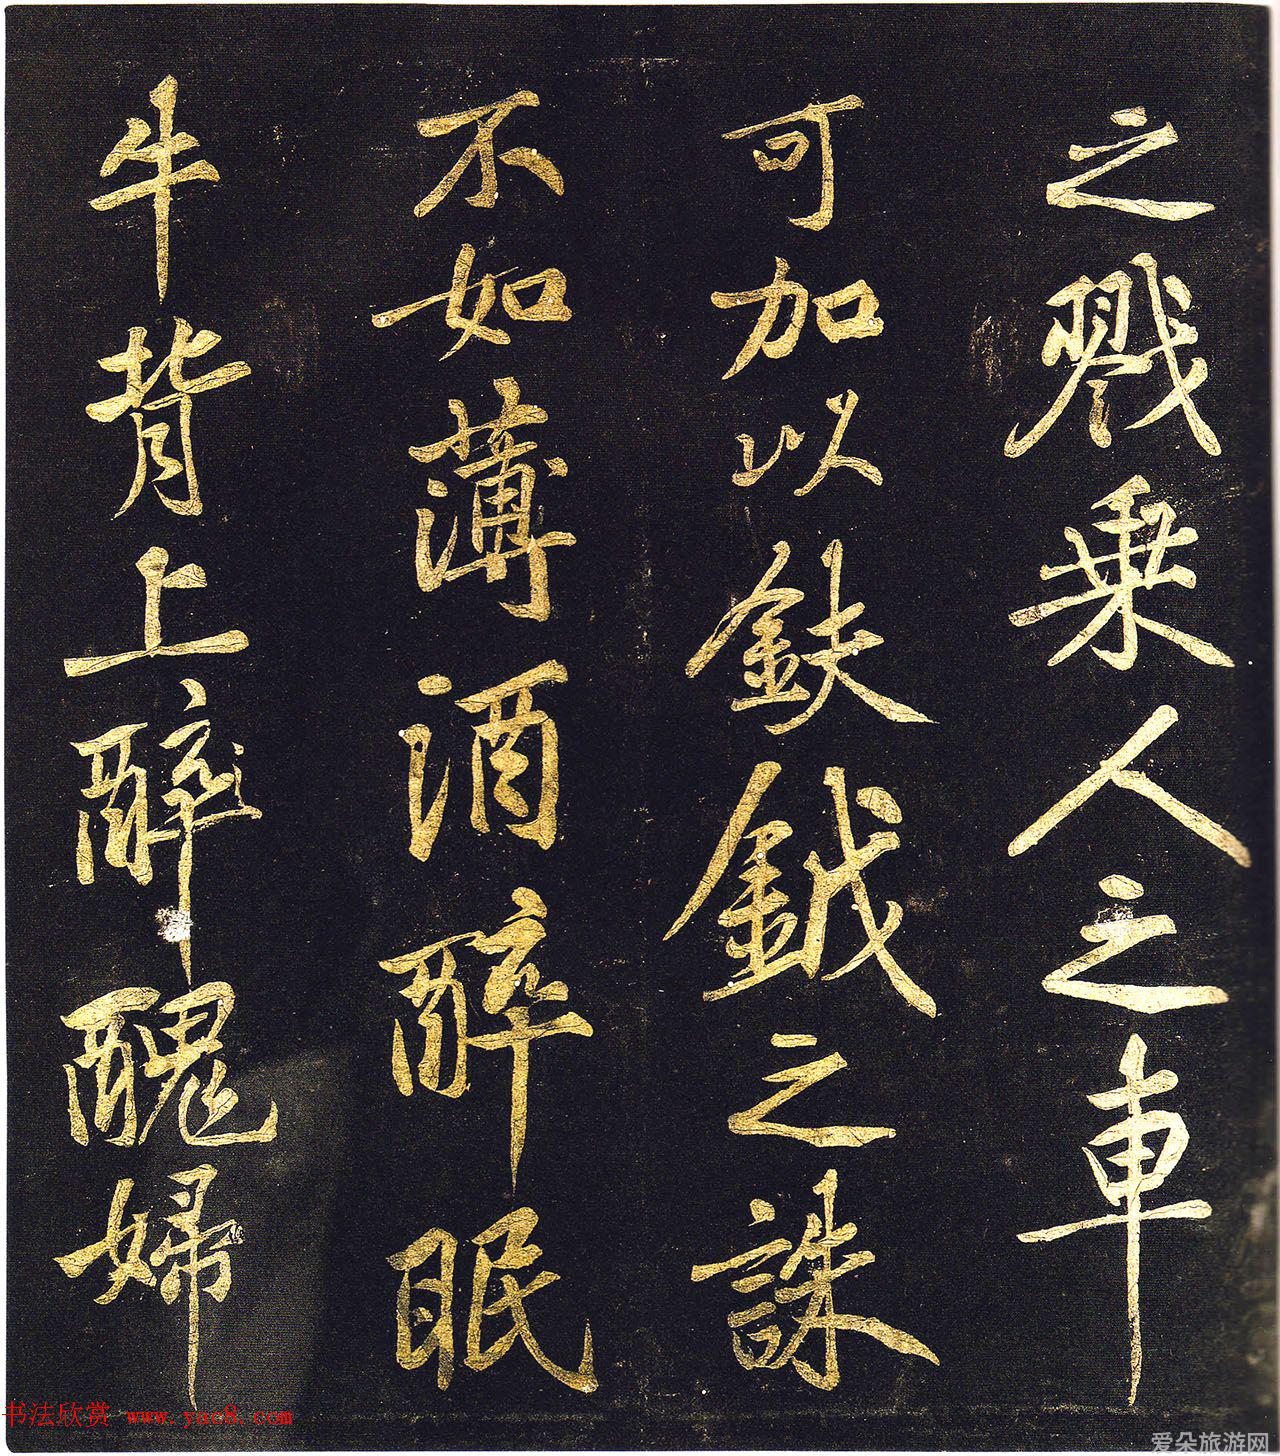 之戮乗人之車
可加以鈇鉞之誅
不如薄酒醉眠
牛背上醉醜婦
书法欣赏 www.yac8.com
爱朵旅游网